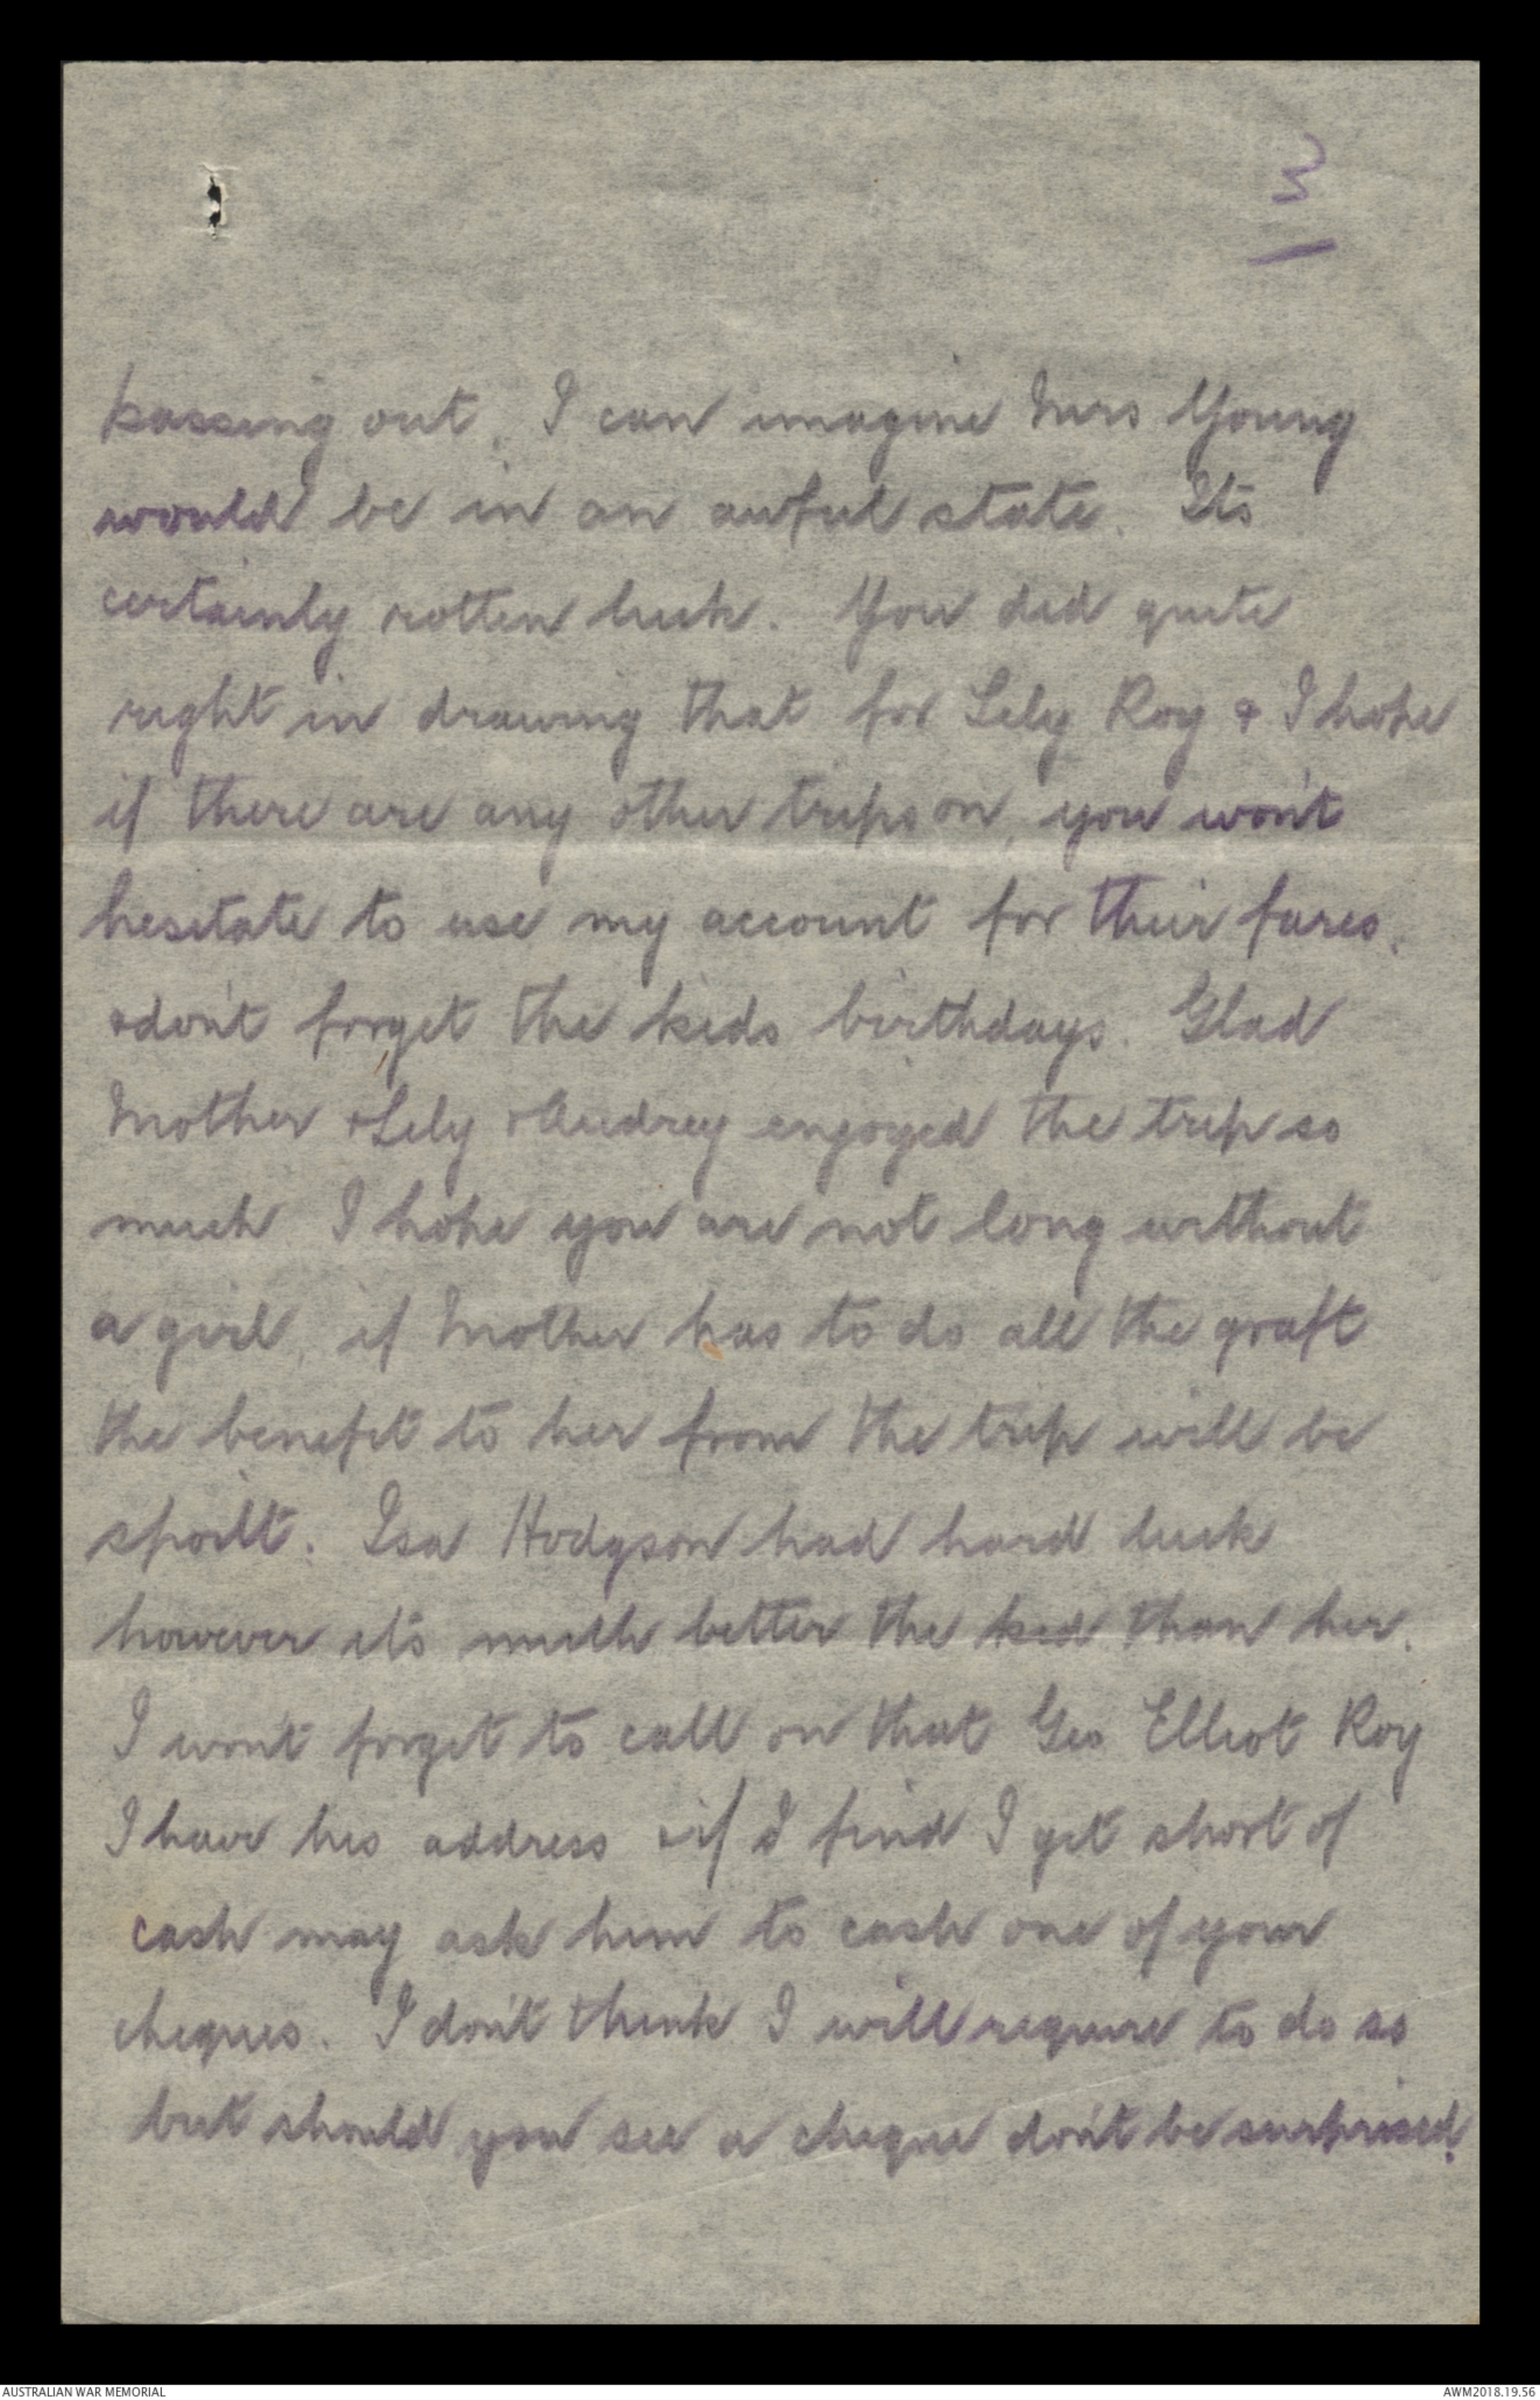 3
passing out. I can imagine Mrs Young
would be in an awful state. Its
certainly rotten luck. You did quite
right in drawing that for Lily Roy & I hope
if there are any other trips on, you won't
hesitate to use my account for their fares.
&don't forget the kids birthdays. Glad
Mother &Lily &Audrey enjoyed the trip so
much I hope you are not long without
a girl, if Mother has to do all the graft
the benefit to her from the trip will be
spoilt. Isa Hodgson had hard luck
however it's much better the kid than her.
I won't forget to call on that Geo Elliot Roy
I have his address &if I find I get short of
cash may ask him to cash one of your
cheques. I don't think I will require to do so
but should you see a cheque don't be surprised.
AUSTRALIAN WAR MEMORIAL
AWM2018.19.56